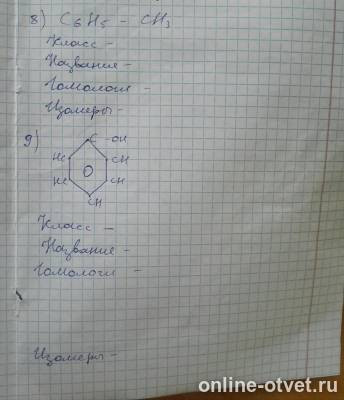 8) C6H5 - CH3
Класс -
Название -
Гомологи -
Изомеры -
9) C - OH
HC CH
HC CH
CH
Класс -
Название -
Гомологи -
Изомеры -
online-otvet.ru